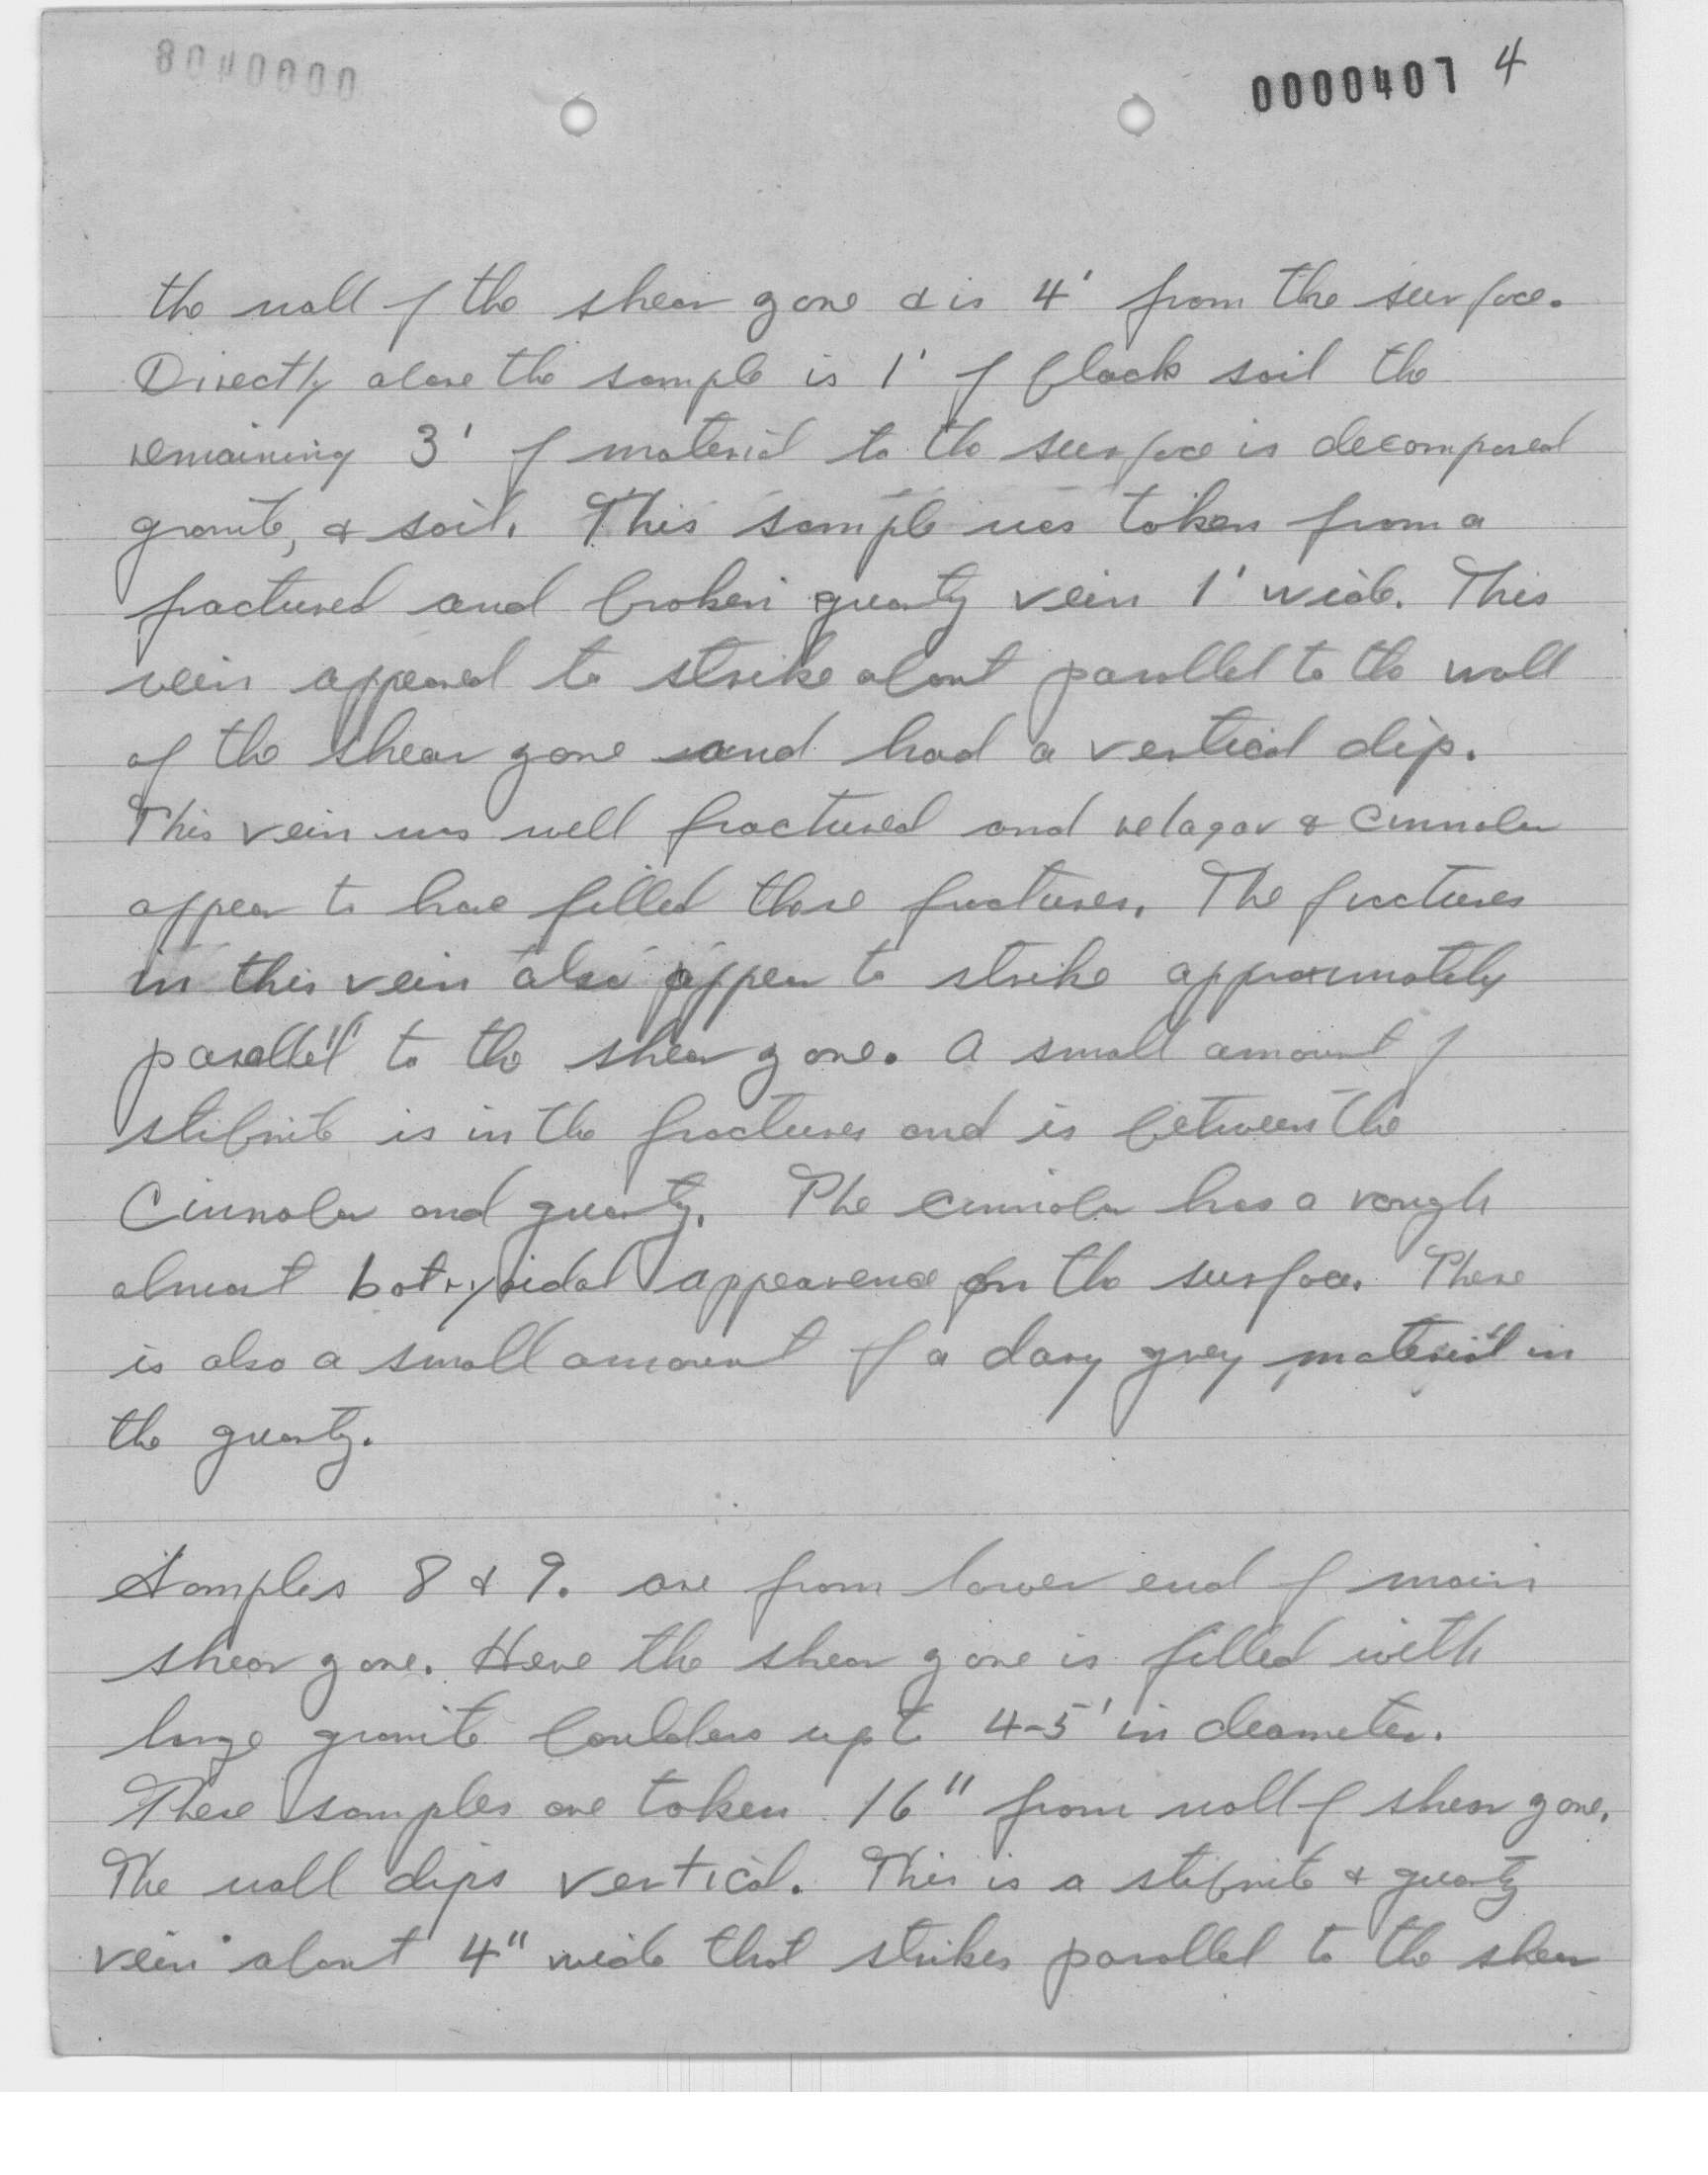 0000407 4
the wall of the shear zone & is 4' from the surface.
Directly above the sample is 1' of black soil the
remaining 3' of material to the surface is decomposed
granite, & soil. This sample was taken from a
fractured and broken quartz vein 1' wide. This
vein appeared to strike about parallel to the wall
of the shear zone and had a vertical dip.
This vein was well fractured and relagar & Cinnabar
appear to have filled those fractures. The fractures
in this vein also appear to strike approximately
parallel to the shear zone. A small amount of
stibnite is in the fractures and is between the
Cinnabar and quartz. The cinnabar has a rough
almost botryoidal appearence on the surface. There
is also a small amount of a grey material in
the quartz.
Samples 8 & 9. are from lower end of main
shear zone. Here the shear zone is filled with
large granite boulders up to 4-5' in deameter.
These samples are taken 16" from wall of shear zone.
The wall dips vertical. This is a stibnite & quartz
vein about 4" wide that strikes parallel to the shear